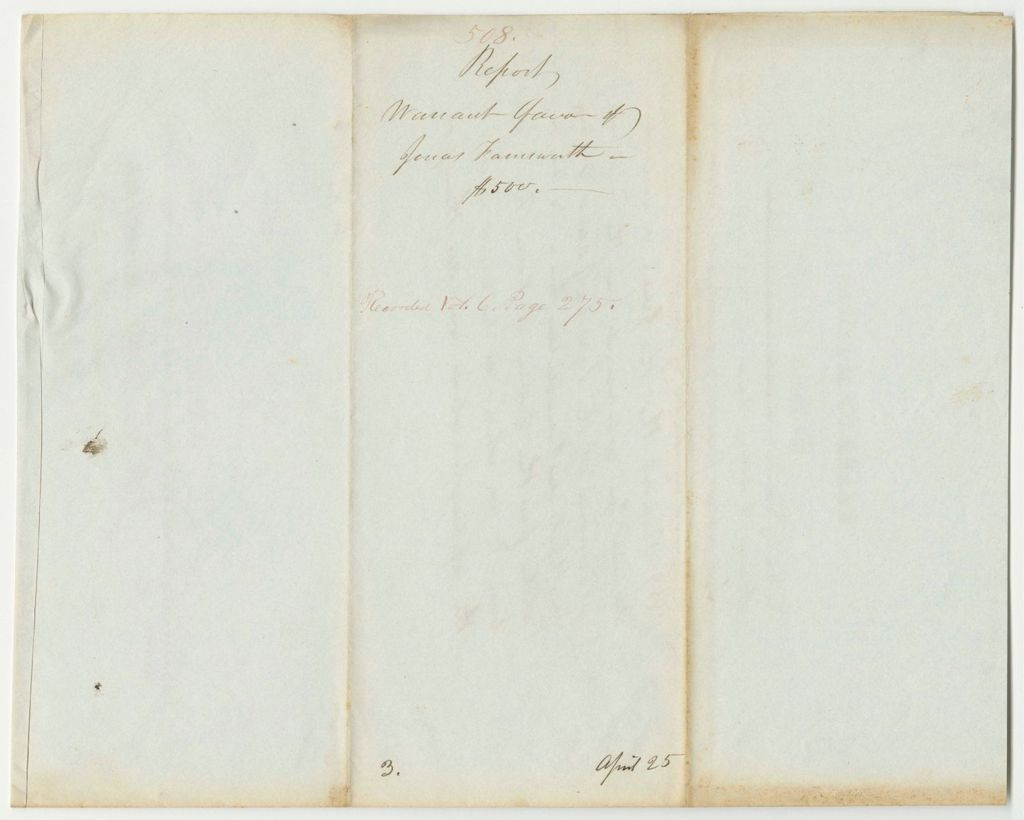 508.
Report
Warrant favor of
Jonas Farnsworth —
$500. —
Recorded Vol. 6. Page 275.
3. April 25